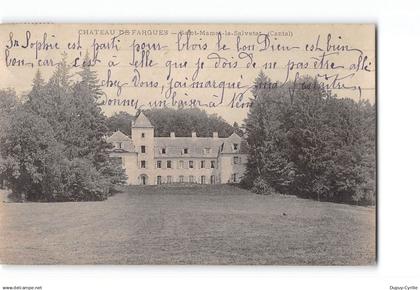 CHATEAU DE FARGUES — Saint-Mamet-la-Salvetat (Cantal)
Sr Sophie est partie pour Blois le bon Dieu est bien
bon car c'est à elle que je dois de ne pas être allé
chez vous, j'ai marqué
un baiser à
Dupuy-Cyrille